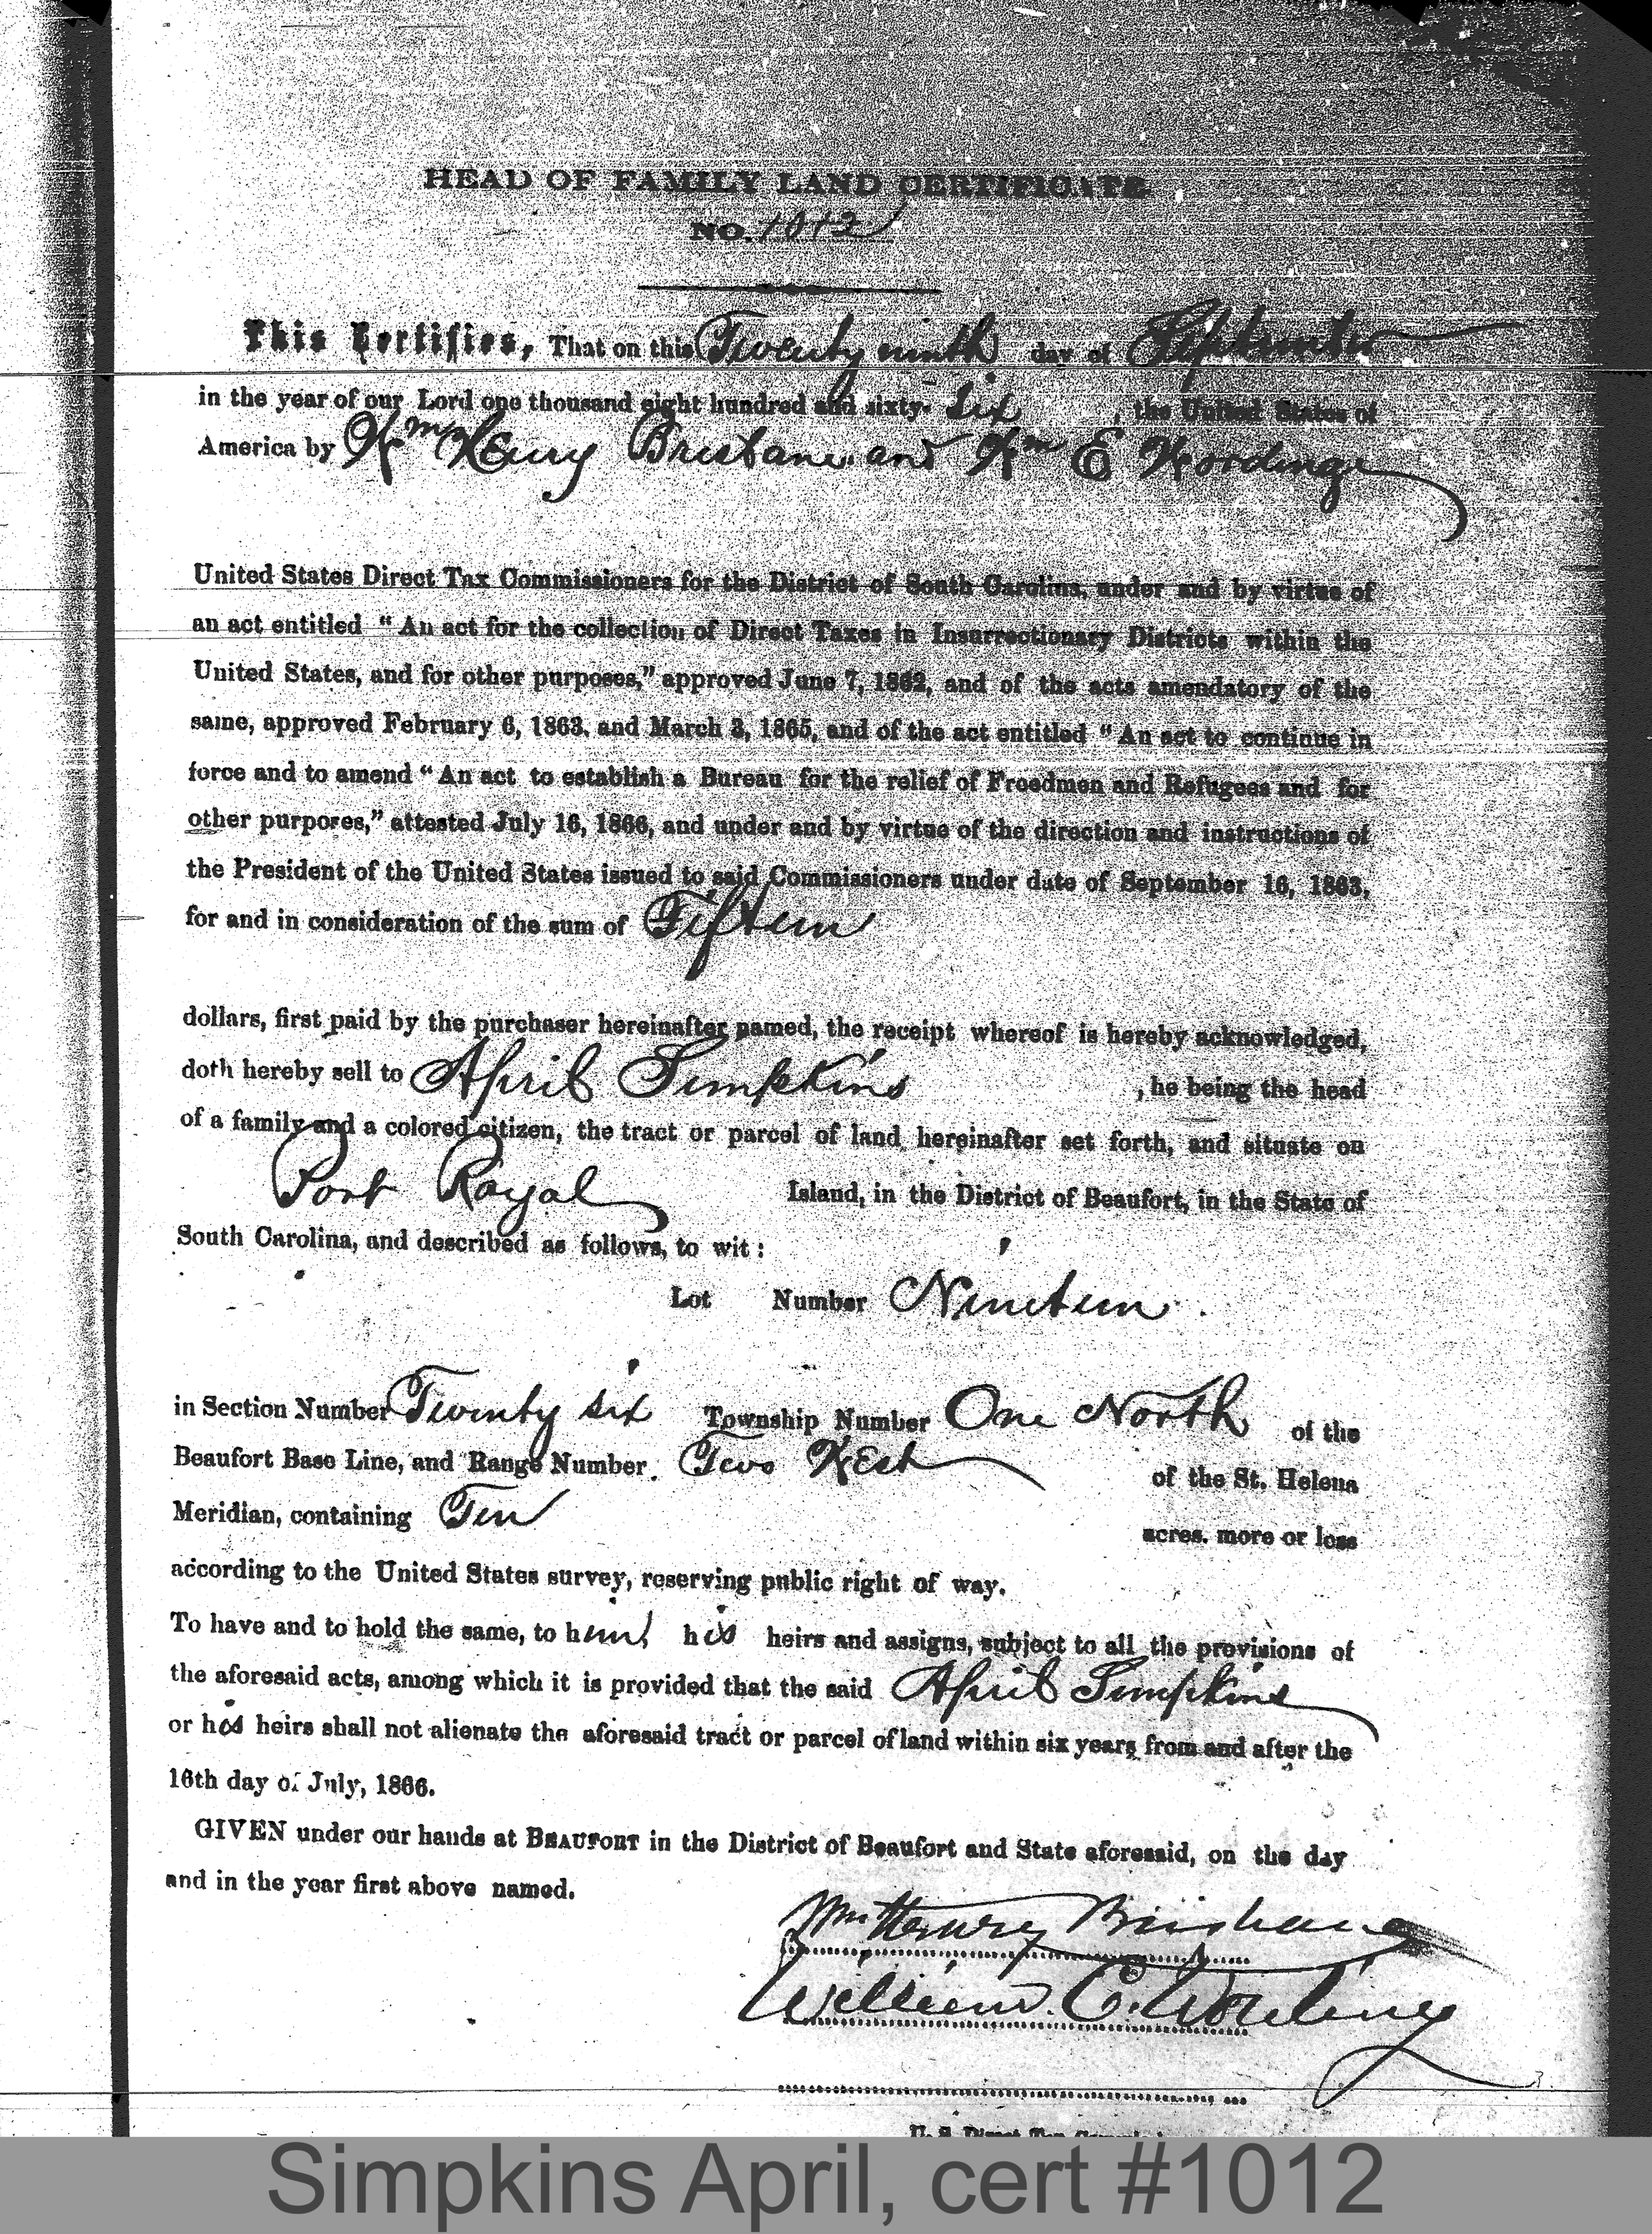 HEAD OF FAMILY LAND CERTIFICATE
NO. 1012
This Certifies, That on this Twenty ninth day of September
in the year of our Lord one thousand eight hundred and sixty- Six, the United States of
America by Wm Henry Brisbane and Wm E Wording
United States Direct Tax Commissioners for the District of South Carolina, under and by virtue of
an act entitled "An act for the collection of Direct Taxes in Insurrectionary Districts within the
United States, and for other purposes," approved June 7, 1862, and of the acts amendatory of the
same, approved February 6, 1863, and March 3, 1865, and of the act entitled "An act to continue in
force and to amend "An act to establish a Bureau for the relief of Freedmen and Refugees and for
other purposes," attested July 16, 1866, and under and by virtue of the direction and instructions of
the President of the United States issued to said Commissioners under date of September 16, 1863,
for and in consideration of the sum of Fifteen
dollars, first paid by the purchaser hereinafter named, the receipt whereof is hereby acknowledged,
doth hereby sell to April Simpkins, he being the head
of a family and a colored citizen, the tract or parcel of land hereinafter set forth, and situate on
Port Royal Island, in the District of Beaufort, in the State of
South Carolina, and described as follows, to wit:
Lot Number Nineteen.
in Section Number Twenty six Township Number One North of the
Beaufort Base Line, and Range Number. Two West of the St. Helena
Meridian, containing Ten acres. more or less
according to the United States survey, reserving public right of way.
To have and to hold the same, to him, his heirs and assigns, subject to all the provisions of
the aforesaid acts, among which it is provided that the said April Simpkins
or his heirs shall not alienate the aforesaid tract or parcel of land within six years from and after the
16th day of July, 1866.
GIVEN under our hands at BEAUFORT in the District of Beaufort and State aforesaid, on the day
and in the year first above named.
Wm Henry Brisbane
William E. Wording
U. S. Direct Tax
Simpkins April, cert #1012